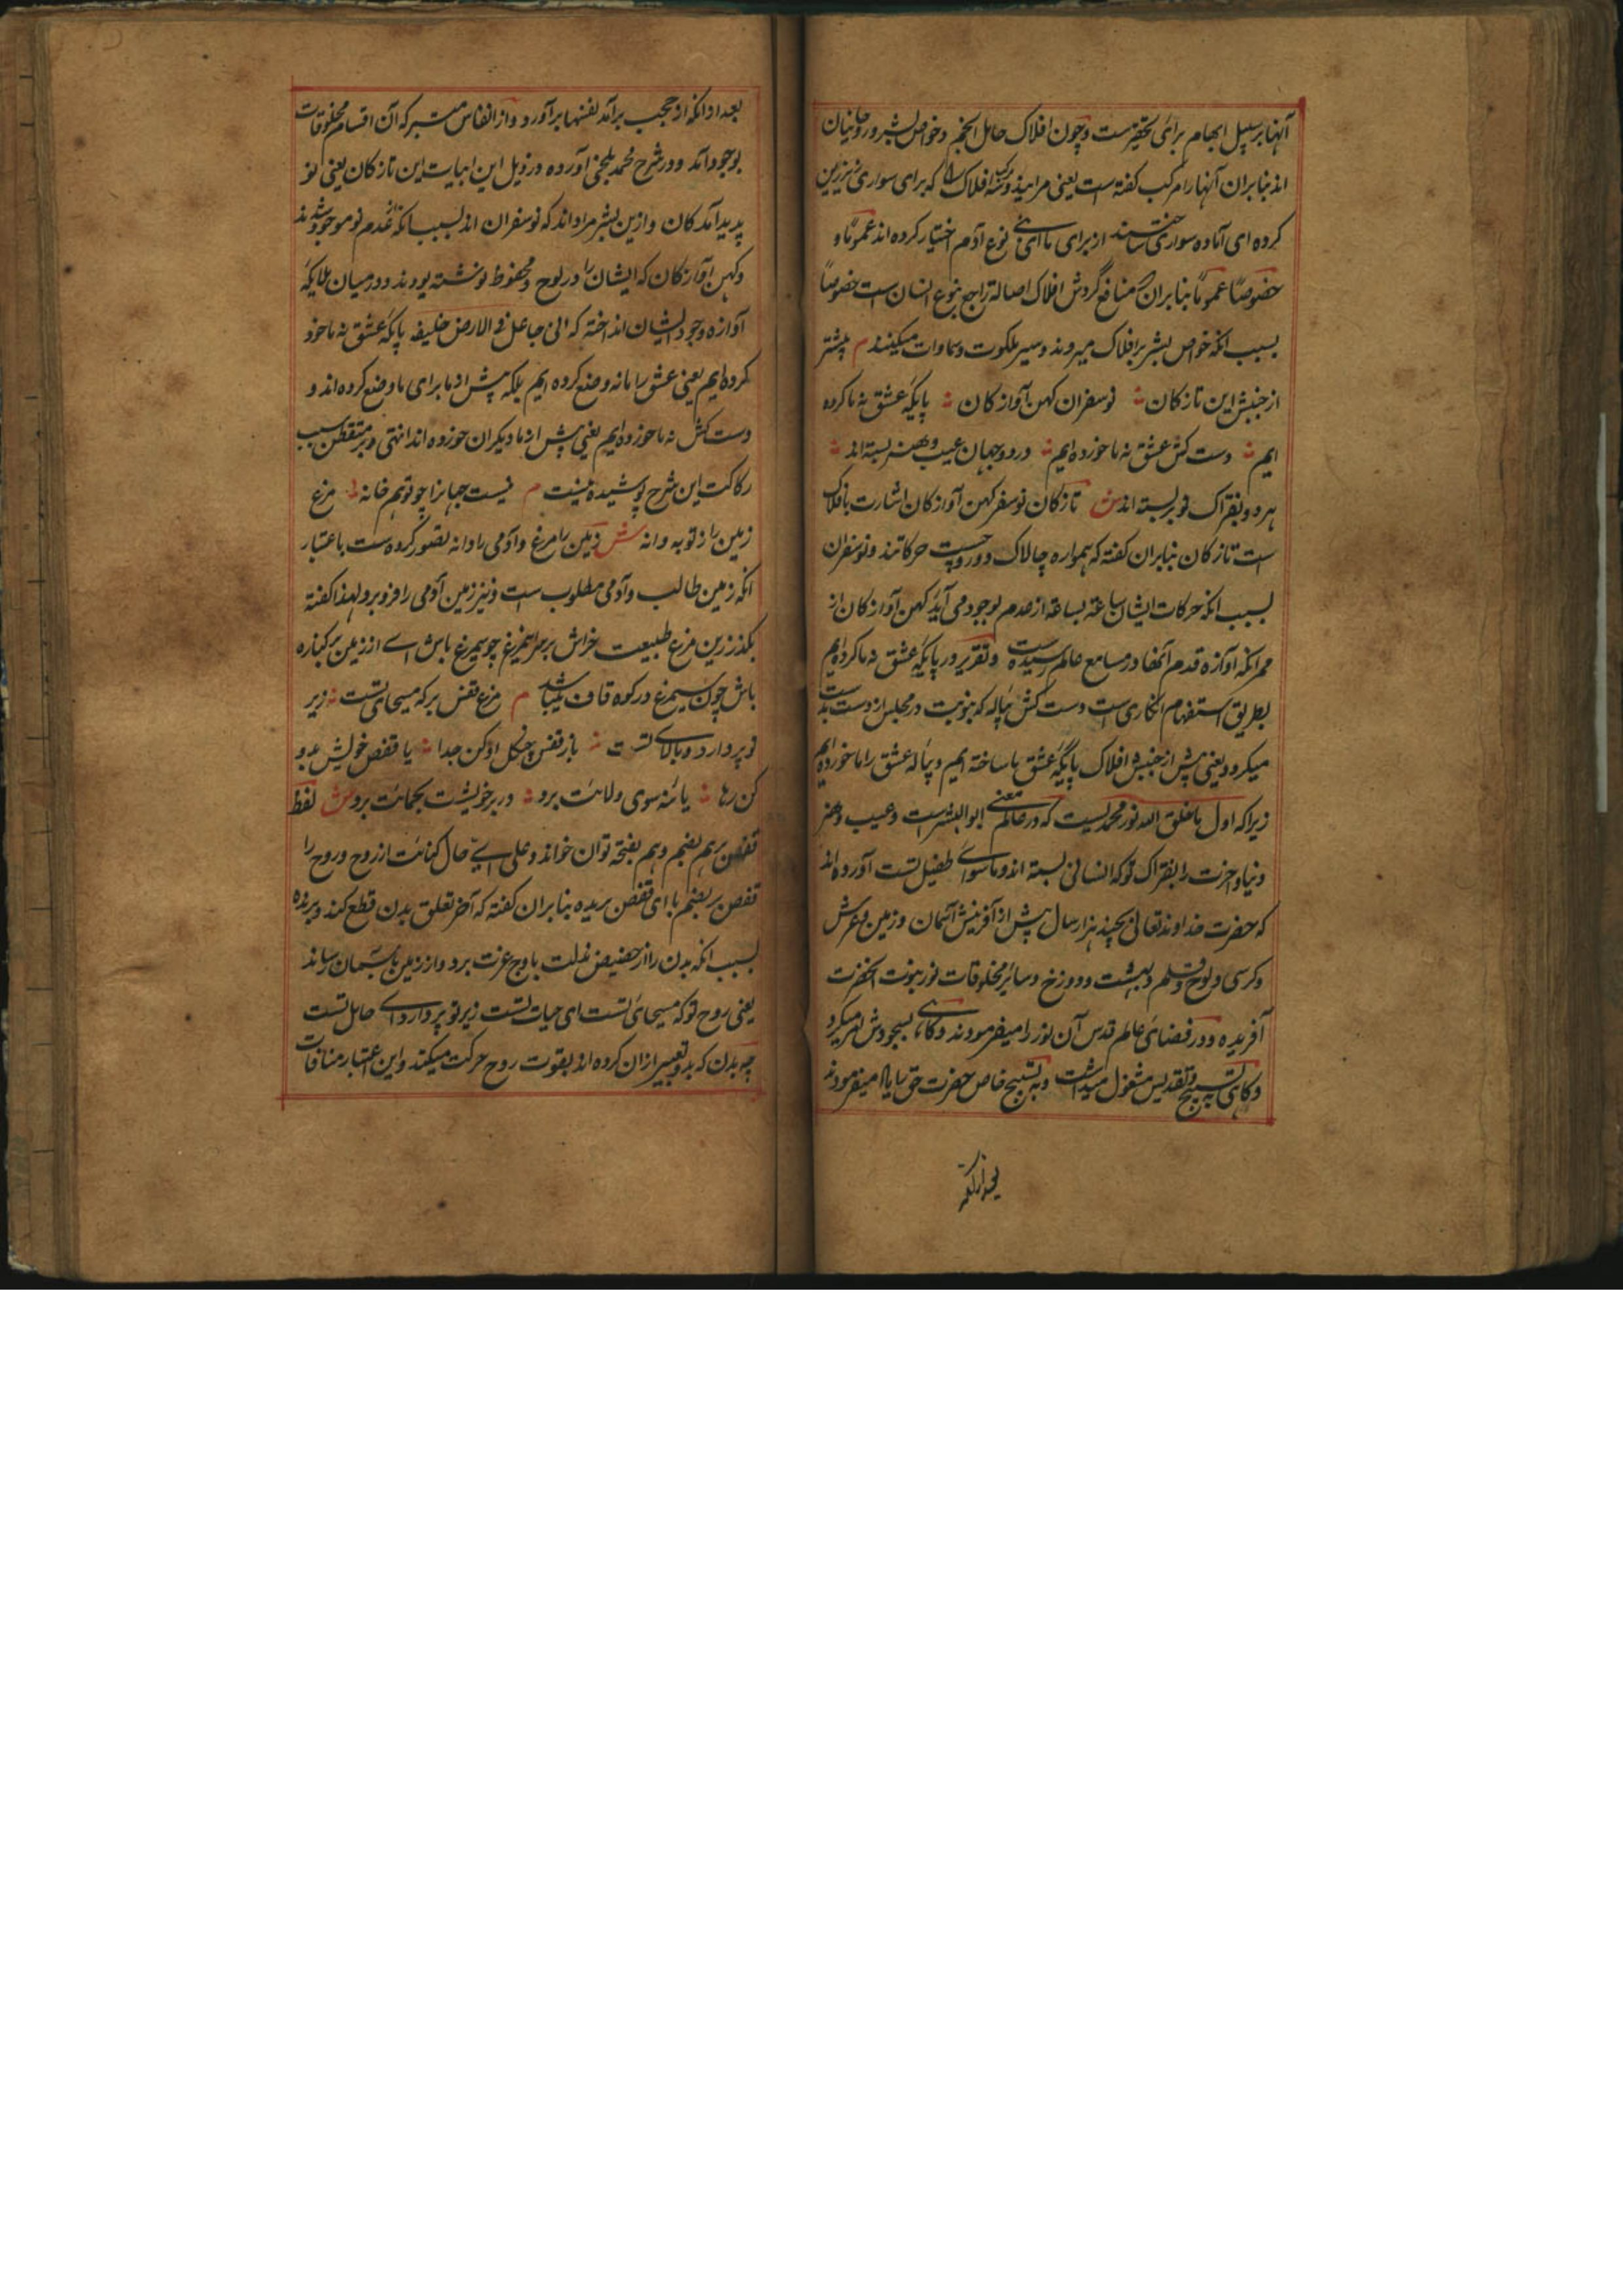 آنها بر سبیل ابهام برای تحقیرست و چون افلاک حامل انجم و خواص بشر و روحانیان
اند بنابران آنها را مرکب گفته است یعنی مرا بیند و مرکبه افلاک را که برای سواری نیز زین
کرده ای آماده سواری ساختند از برای ما ای بنی نوع آدم اختیار کرده اند عموماً و
خصوصاً عموماً بنابران که منافع گردش افلاک اصالة راجع بنوع انسان است خصوصاً
بسبب آنکه خواص بشر بر افلاک میروند و سیر ملکوت و سماوات میکنند م پیشتر
از جنبش این تازکان نوسفران کهن آوازکان پایکه عشق نه ما کرده
ایم دست کش عشق نه ما خورده ایم در دو جهان عیب و هنر بسته اند
هر دو بفتراک تو بر بسته اند ش تازکان نوسفر کهن آوازکان اشارت بافلاک
است تازکان بنابران گفته که همواره چالاک و در چست حرکاتند و نوسفران
بسبب آنکه حرکات ایشان ساعة بساعة از عدم بوجود می آید کهن آوازکان از
ممر آنکه آوازه قدم آنها در مسامع عالم رسیده است و تقریر در پایکه عشق نه ما کرده ایم
بطریق استفهام انکاری است و دست کش پیاله که بنوبت در مجلس از دست بدست
میکرود یعنی پیش از جنبش افلاک پایگه عشق ما ساخته ایم و پیاله عشق را ما خورده ایم
زیرا که اول ما خلق الله نور محمدیست که در عالم معنی ابو البشر است و عیب و هنر
دنیا و آخرت را بفتراک تو که انسانی بسته اند و ما سوای طفیل تست آورده اند
که حضرت خداوند تعالی بچند هزار سال پیش از آفرینش آسمان و زمین و عرش
و کرسی و لوح و قلم و بهشت و دوزخ و سائر مخلوقات نور نبوت آنحضرت
آفریده و در فضای عالم قدس آن نور را میفرمودند و گاهی بسجودش امر میکرد
و گاهی به تسبیح و تقدیس مشغول میداشت و به تسبیح خاص حضرت حق را یاد میفرمودند
بعد ازانکه
بعد ازانکه از حجب برآمد نفسها برآورد و از انفاس متبرکه آن اقسام مخلوقات
بوجود آمد و در شرح محمد بلخی آورده در ذیل این ابیات این تازکان یعنی نو
پدید آمدکان و ازین بشر مراد اند که نوسفران اند بسبب آنکه از عدم نو موجود شدند
و کهن آوازکان که ایشان را در لوح محفوظ نوشته بودند و در میان ملایکه
آوازه وجود ایشان انداخته که انی جاعل فی الارض خلیفه پایکه عشق نه ما خود
کرده ایم یعنی عشق را ما نه وضع کرده ایم بلکه پیش از ما برای ما وضع کرده اند و
دست کش نه ما خورده ایم یعنی پیش از ما دیکران خورده اند انتهی و بر متفطن سبب
رکاکت این شرح پوشیده نیست م نیست جهانرا چو تو همخانه مرغ
زمین را ز تو به دانه ش زمین را مرغ و آدمی را دانه تصور کرده است باعتبار
آنکه زمین طالب و آدمی مطلوب است و نیز زمین آدمی را فرو برد و لهذا گفته
بگذر ازین مرغ طبیعت خراش بر سر این مرغ چو سیمرغ باش ای از زمین برکناره
باش چون سیمرغ در کوه قاف میباشد م مرغ قفس پر که مسیحای تست زیر
تو پر دارد و بالای تست یا ز قفس چنگل او کن جدا یا قفص خویش بدو
کن رها یا تنه سوی ولایت برد در پر خویشت بحمایت برد ش لفظ
قفص پر هم بضم و هم بفتحه توان خواند و علی ای حال کنایت از روح و روح را
قفص پر بضم با ای قفص بریده بنابران گفته که آخر تعلق بدن قطع کند و پرنده
بسبب آنکه بدن را از حضیض مذلت باوج عزت برد و از زمین بآسمان رساند
یعنی روح تو که مسیحای تست ای حیات تست زیر تو پر دارد ای حامل تست
چه بدن که بدو تعبیر ازان کرده اند بقوت روح حرکت میکند و این اعتبار منافات